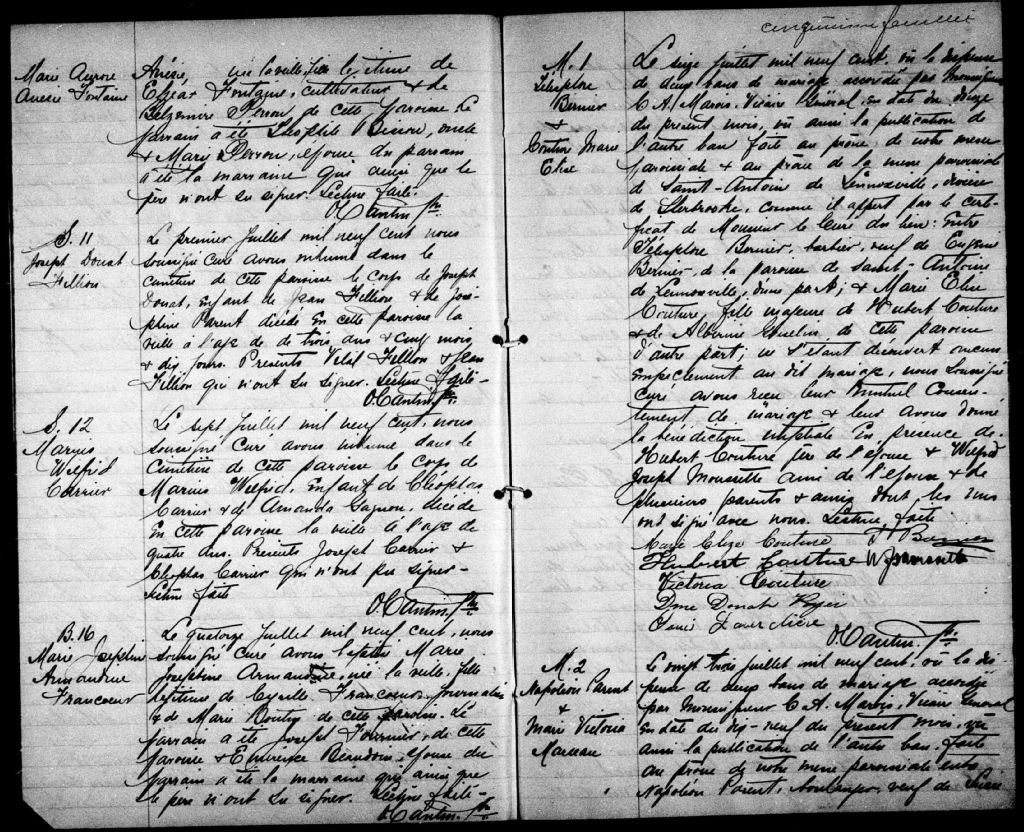 Marie Aurore
Anésie Fontaine
Anésie, née la veille, fille légitime de
Elzear Fontaine, cultivateur & de
Belzemire Perron, de cette paroisse. Le
parrain a été Théophile Bisson, oncle
& Marie Perron, épouse du parrain
a été la marraine qui ainsi que le
père n'ont su signer. Lecture faite.
O. Cantin Ptre
S. 11
Joseph Donat
Fillion
Le premier Juillet mil neuf cent nous
soussigné curé avons inhumé dans le
cimetière de cette paroisse le corps de Joseph
Donat, enfant de Jean Fillion & de José-
phine Parent décédé en cette paroisse la
veille à l'age de de trois ans & cinq mois
& dix jours. Présents Vital Fillion & Jean
Fillion qui n'ont su signer. Lecture faite.
O. Cantin Ptre
S. 12
Marius
Wilfrid
Carrier
Le sept Juillet mil neuf cent, nous
soussigné Curé avons inhumé dans le
cimetière de cette paroisse le corps de
Marius Wilfrid, enfant de Cléophas
Carrier & de Amanda Gagnon, décédé
en cette paroisse la veille à l'age de
quatre ans. Présents Joseph Carrier &
Cléophas Carrier qui n'ont pu signer.
Lecture faite
O. Cantin, Ptre
B. 16
Marie Josephine
Armandine
Francoeur
Le quatorze Juillet mil neuf cent, nous
soussigné curé avons baptisé Marie
Joséphine Armandine, née la veille, fille
légitime de Cyrille Francoeur, journalier
& de Marie Boutin de cette paroisse. Le
parrain a été Joseph Fournier, de cette
paroisse & Beaudoin, épouse du
parrain a été la marraine qui ainsi que
le père n'ont su signer. Lecture faite.
O. Cantin. Ptre
cinquième feuillet
M. 1
Télesphore
Bernier
&
Couture Marie
Elise
Le seize Juillet mil neuf cent, vû la dispense
de deux bans de mariage accordée par Monseigneur
C. A. Marois, Vicaire Général, en date du douze
du présent mois, vû aussi la publication de
l'autre ban faite au prône de notre messe
paroissiale & au prône de la messe paroissiale
de Saint-Antoine de Lennoxville, diocèse
de Sherbrooke, comme il appert par le certi-
ficat de Monsieur le Curé du lieu: Entre
Télesphore Bernier, barbier, veuf de Eugénie
Bernier, de la paroisse de Saint-Antoine
de Lennoxville, d'une part; & Marie Elise
Couture, fille majeure de Hubert Couture
& de Albérine Asselin de cette paroisse
d'autre part; ne s'étant découvert aucun
empêchement au dit mariage, nous soussigné
curé avons reçu leur mutuel consen-
tement, de mariage & leur avons donné
la bénédiction nuptiale En présence de
Hubert Couture père de l'épouse & Wilfrid
Joseph ami de l'époux & de
plusieurs parents & amis dont les uns
ont signé avec nous. Lecture faite
Marie Elize Couture T. Bernier
Hubert Couture
Victoria Couture
Dme Donat
O. Cantin. Ptre
M. 2
Napoléon Parent
&
Marie Victoria
Marceau
Le vingt trois Juillet mil neuf cent, vû la dis-
pense de deux bans de mariage accordée
par Monseigneur C. A. Marois, Vicaire Général
en date du dix-neuf du présent mois, vû
aussi la publication de l'autre ban, faite
au prône de notre messe paroissiale entre
Napoléon Parent, boulanger, veuf de